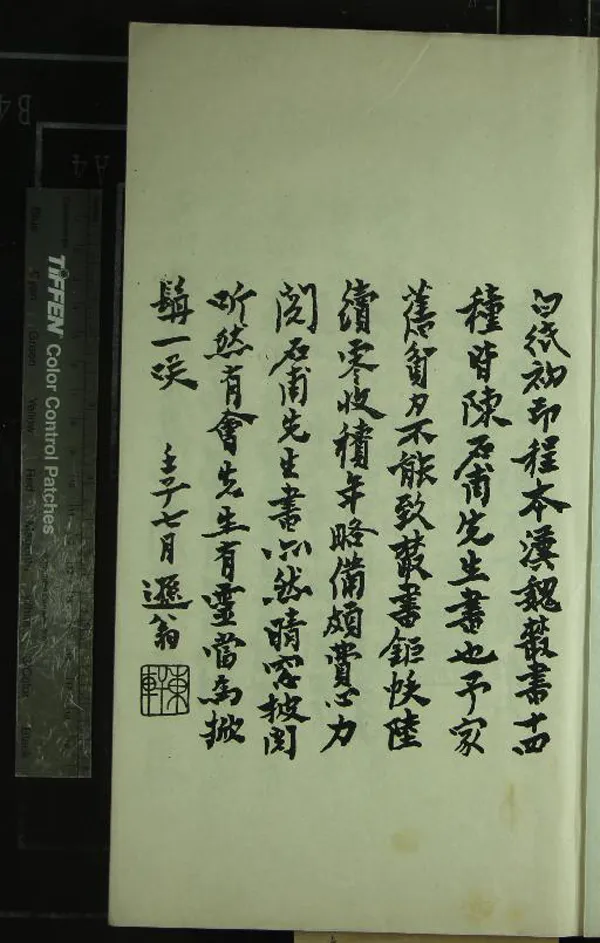 白紙初印程本漢魏叢書十四
種皆陳石甫先生書也予家
舊貧力不能致叢書鉅帙陸
續零收積年略備頗費心力
閱石甫先生書亦然晴窗披閱
听然有會先生有靈當為掀
髯一笑
壬子七月 遯翁
東軒
TIFFEN Color Control Patches
Blue Cyan Green Yellow Red
B4
A4